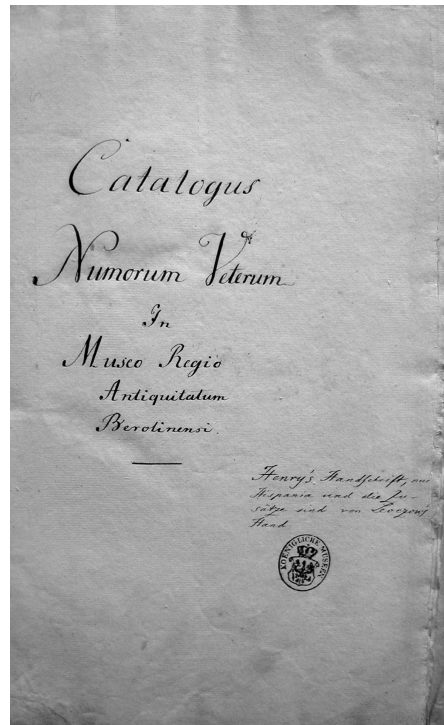 Catalogus
Numorum Veterum
In
Museo Regio
Antiquitatum
Berolinensi.
Henry's Handschrift, nur
Hispania und die Zu-
sätze sind von Levezow's
Hand
KOENIGLICHE MUSEEN